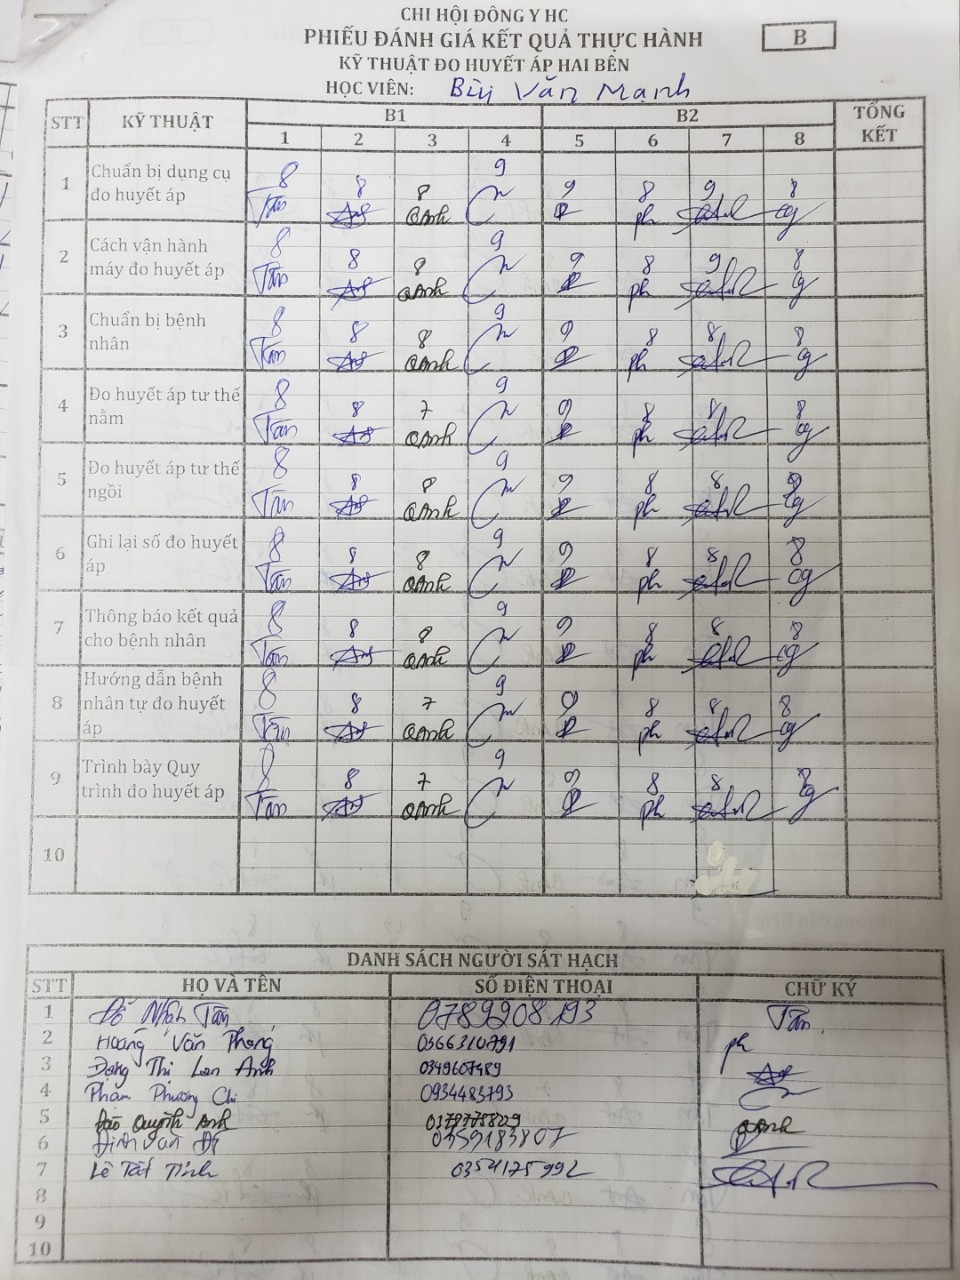 CHI HỘI ĐÔNG Y HC
PHIẾU ĐÁNH GIÁ KẾT QUẢ THỰC HÀNH
B
KỸ THUẬT ĐO HUYẾT ÁP HAI BÊN
HỌC VIÊN: Bùi Văn Mạnh
STT KỸ THUẬT B1 B2 TỔNG KẾT
1 2 3 4 5 6 7 8
1 Chuẩn bị dụng cụ đo huyết áp 8 8 8 9 9 8 9 8
Tân QAnh ph
2 Cách vận hành máy đo huyết áp 8 8 8 9 9 8 9 8
Tân QAnh ph
3 Chuẩn bị bệnh nhân 8 8 8 9 9 8 8 8
Tân QAnh ph
4 Đo huyết áp tư thế nằm 8 8 7 9 9 8 8 8
Tân QAnh ph
5 Đo huyết áp tư thế ngồi 8 8 8 9 9 8 8
Tân QAnh ph
6 Ghi lại số đo huyết áp 8 8 8 9 9 8 8 8
Tân QAnh ph
7 Thông báo kết quả cho bệnh nhân 8 8 8 9 9 8 8 8
Tân QAnh ph
8 Hướng dẫn bệnh nhân tự đo huyết áp 8 8 7 9 9 8 8 8
Tân QAnh ph
9 Trình bày Quy trình đo huyết áp 8 8 7 9 9 8 8
Tân QAnh ph
10
DANH SÁCH NGƯỜI SÁT HẠCH
STT HỌ VÀ TÊN SỐ ĐIỆN THOẠI CHỮ KÝ
1 Đỗ Nhân Tân 0789208193 Tân
2 Hoàng Văn Phong 0366310791 ph
3 Đặng Thị Lan Anh 0349607489
4 Phạm Phương Chi 0934483793
5 Đào Quỳnh Anh QAnh
6 Đinh Văn 0359183807
7 Lê Tất Tính 0354175992
8
9
10